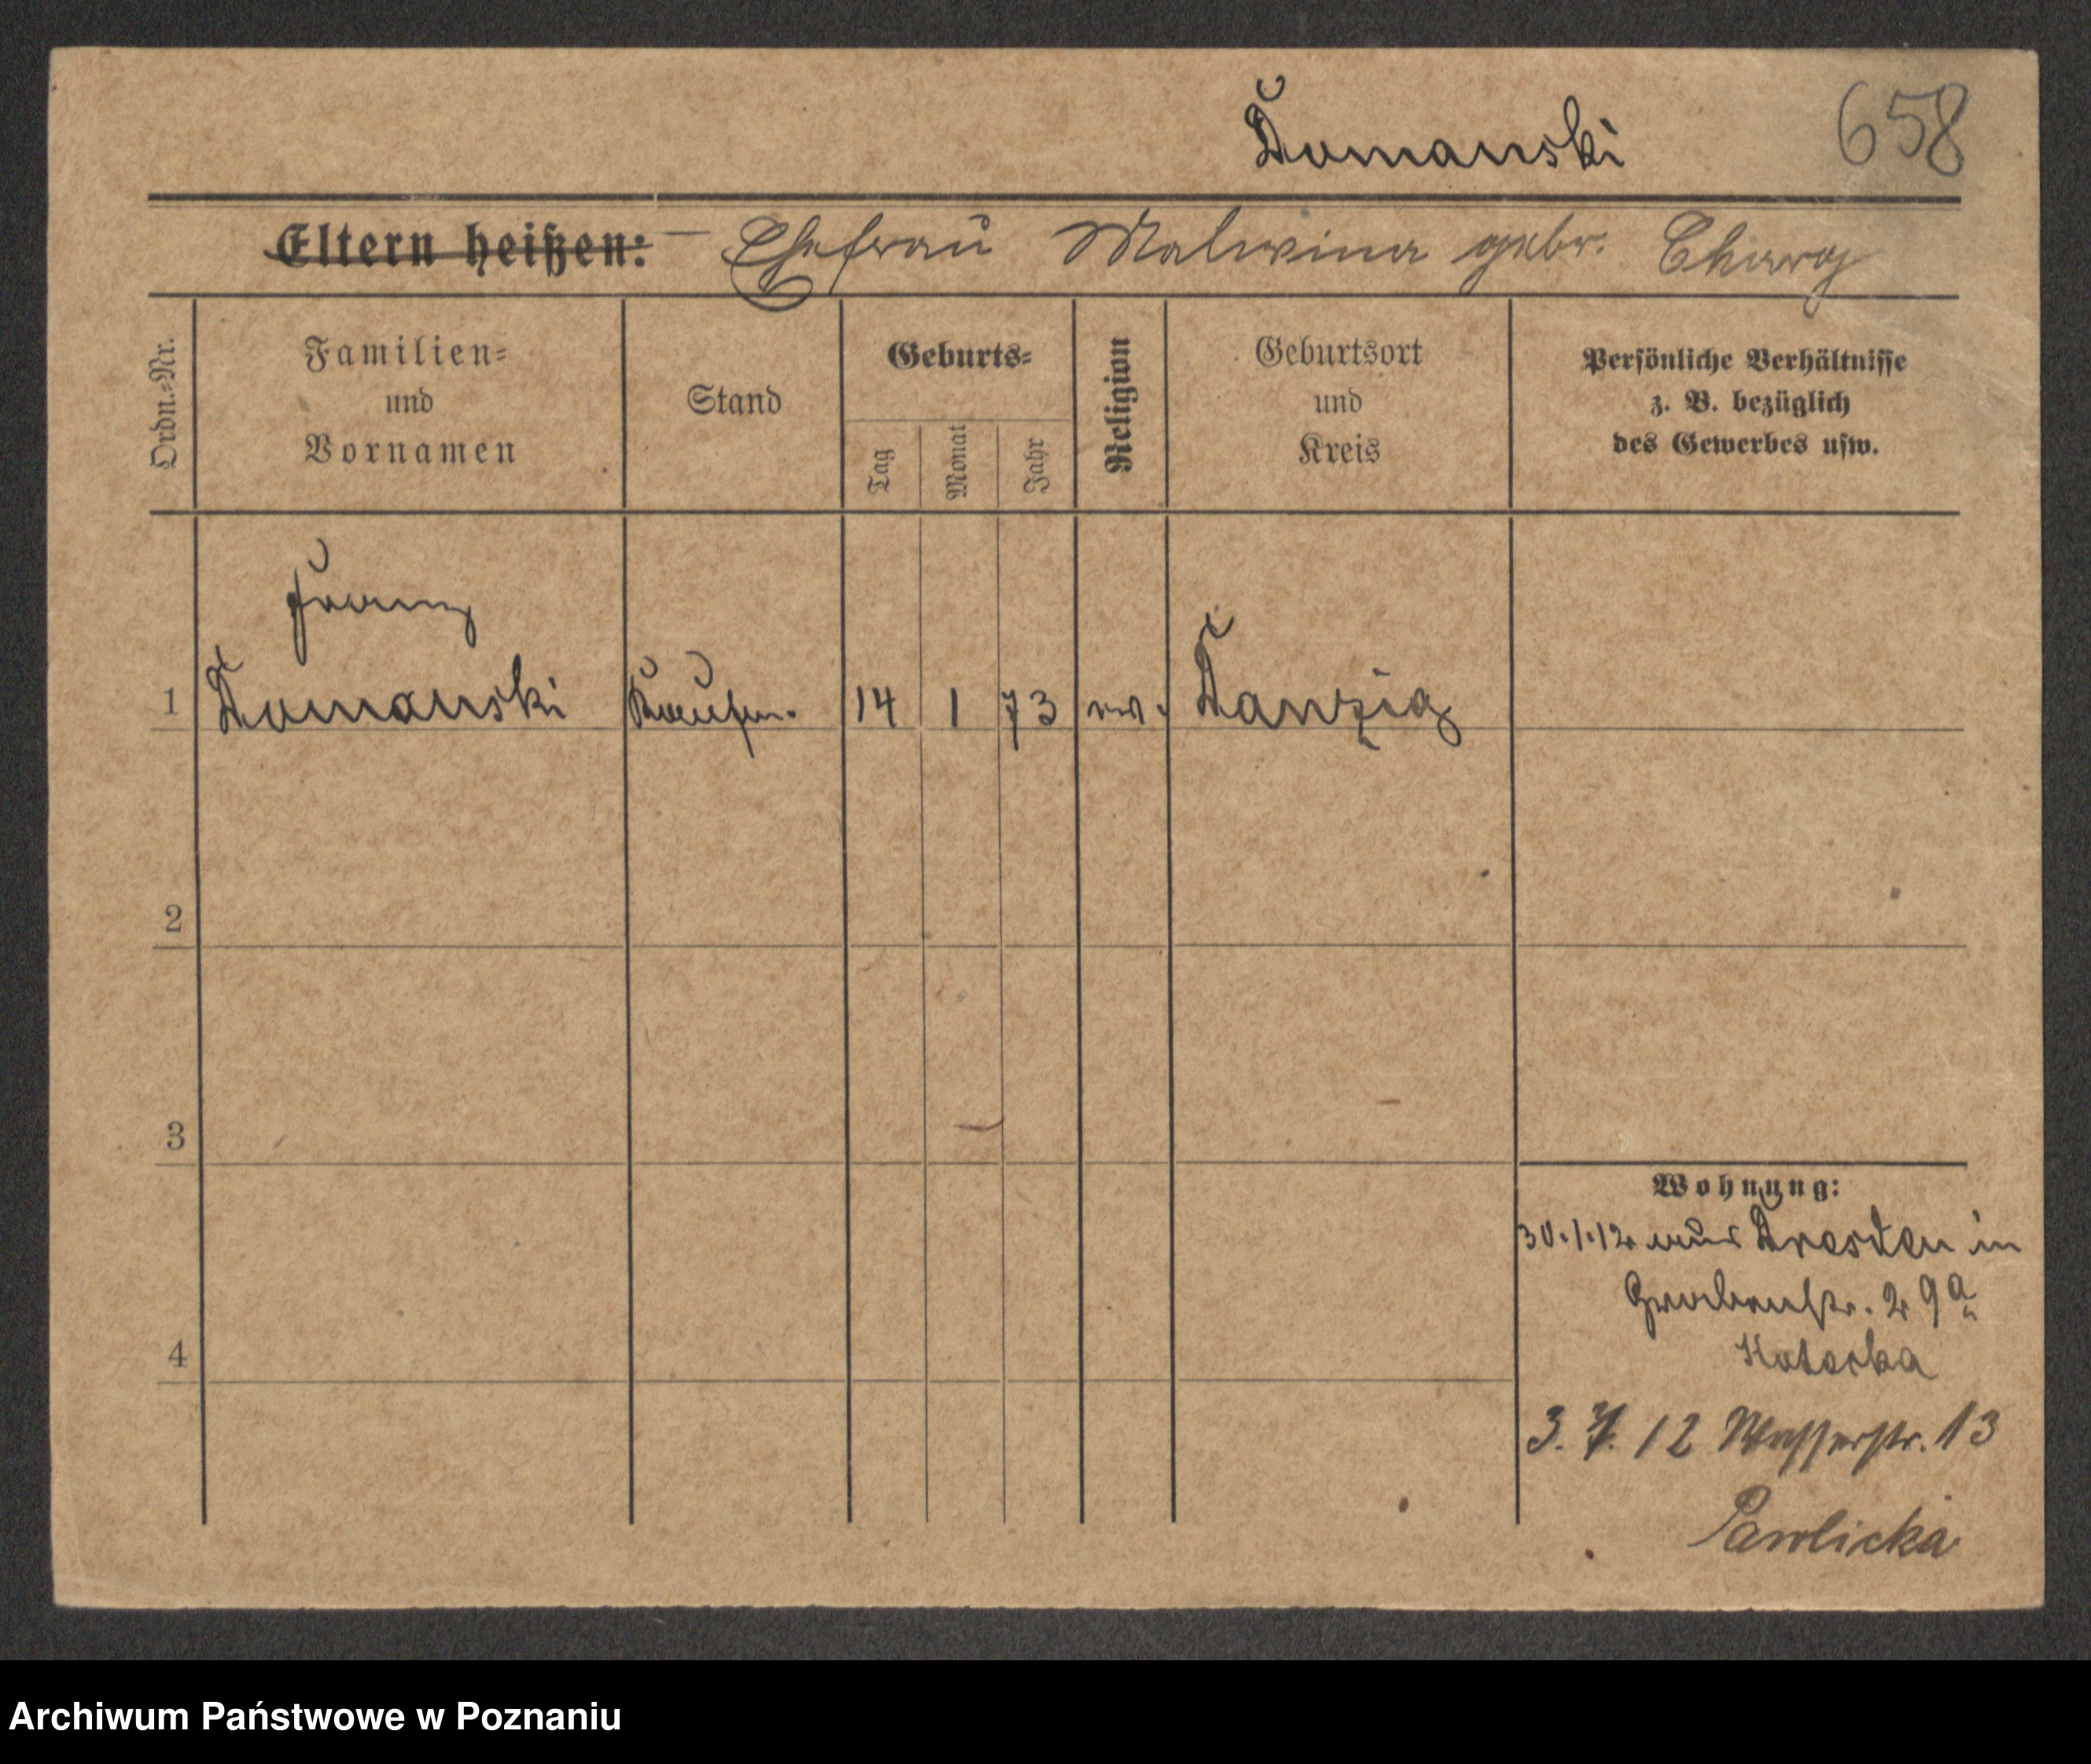 Domanski 658
Eltern heißen: – Ehefrau Malwina gebr.
Ordn.=Nr.
Familien=
und
Vornamen
Stand
Geburts=
Tag
Monat
Jahr
Religion
Geburtsort
und
Kreis
Persönliche Verhältnisse
z. B. bezüglich
des Gewerbes usw.
Franz
1 Domanski Kaufm. 14 1 73 Danzig
2
3
4
Wohnung:
30.1.12 aus Dresden in
Grabenstr. 29a
3. 7. 12 Wasserstr. 13
Pawlicka
Archiwum Państwowe w Poznaniu